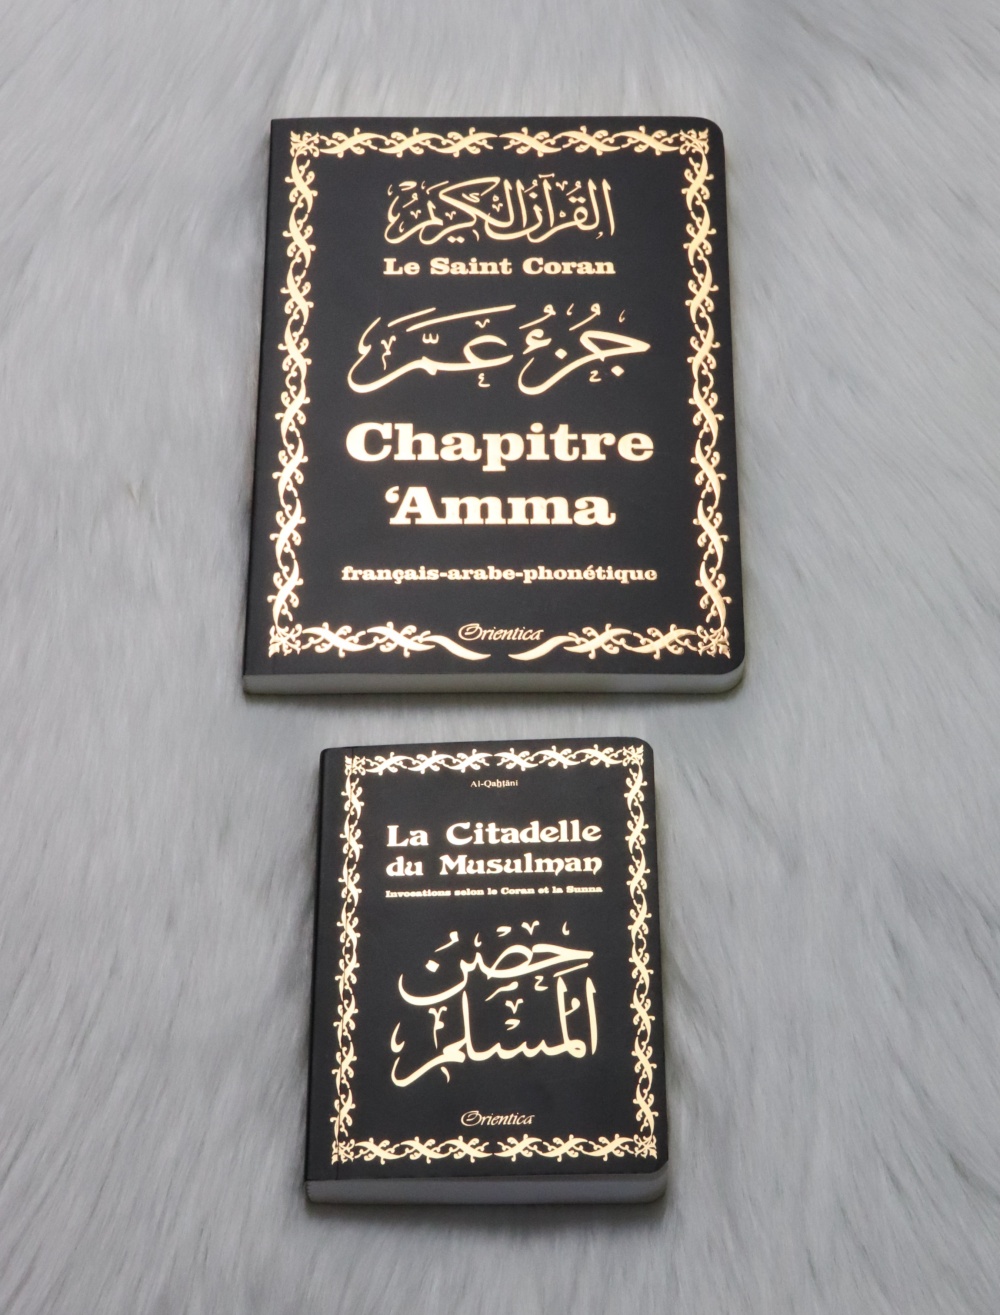 القُرآنُ الكَرِيمُ
Le Saint Coran
جُزءُ عَمَّ
Chapitre
‘Amma
français-arabe-phonétique
Orientica
Al-Qaḥṭānī
La Citadelle
du Musulman
Invocations selon le Coran et la Sunna
حِصْنُ
المُسْلِم
Orientica